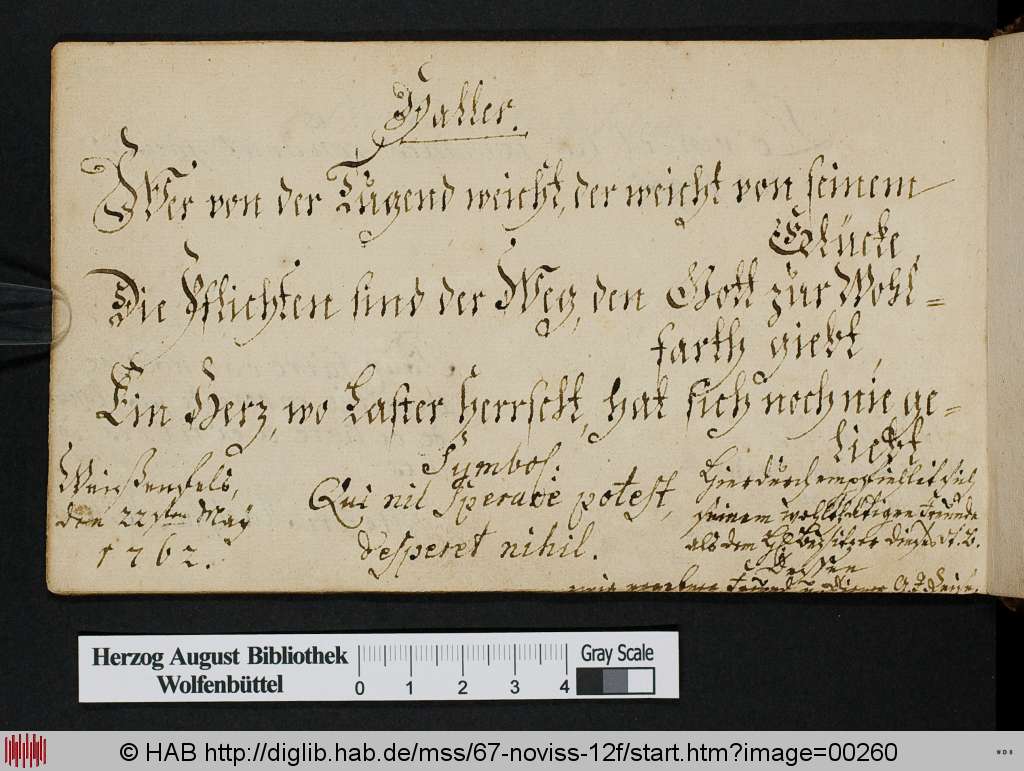 Haller.
Wer von der Tugend weicht, der weicht von seinem
Glücke,
Die Pflichten sind der Weg, den Gott zur Wohl=
farth giebt,
Ein Herz, wo Laster herrscht, hat sich noch nie ge=
liebt
Weißenfels,
den 22sten May
1762.
Symbol.
Qui nil sperare potest,
desperet nihil.
Hierdurch empfiehlet sich
seinem wehrtesten Freunde
als dem H. Besitzer dieses St. B.
Dessen
Freund u. Diener
Herzog August Bibliothek
Wolfenbüttel
0 1 2 3 4
Gray Scale
© HAB http://diglib.hab.de/mss/67-noviss-12f/start.htm?image=00260
WDB